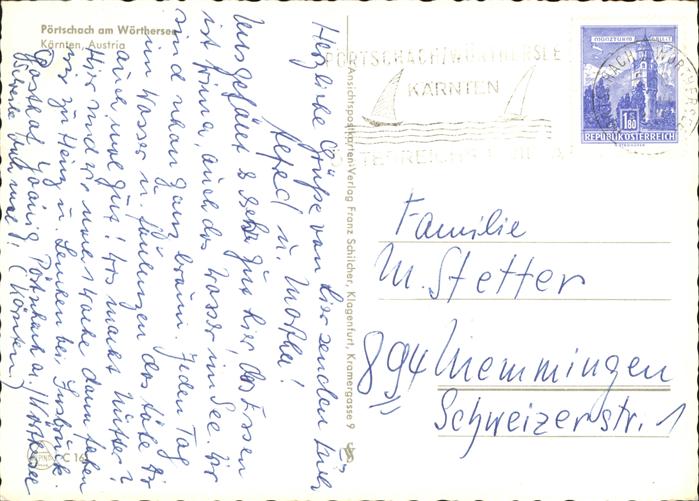 Pörtschach am Wörthersee
Kärnten, Austria
Herzliche Grüße von hier senden Euch
Alfred u. Martha!
Uns gefällt es sehr gut hier! das Essen
ist prima, auch das Wasser im See. Wir
sind schon ganz braun. Jeden Tag
im Wasser u. faulenzen das täte Dir
auch mal gut! Was macht Mutter?
Hier sind wir eine Woche dann fahren
wir zu Heinz u. bei Insbruck.
Gasthof Joainig Pörtschach a. Wörthersee
(Kärnten)
C 16
Ansichtspostkarten-Verlag Franz Schilcher, Klagenfurt, Kramergasse 9
PÖRTSCHACH/WÖRTHERSEE
KÄRNTEN
MÜNZTURM HALL I. T.
1.80
REPUBLIK ÖSTERREICH
Familie
M. Stetter
894 Memmingen
Schweizerstr. 1